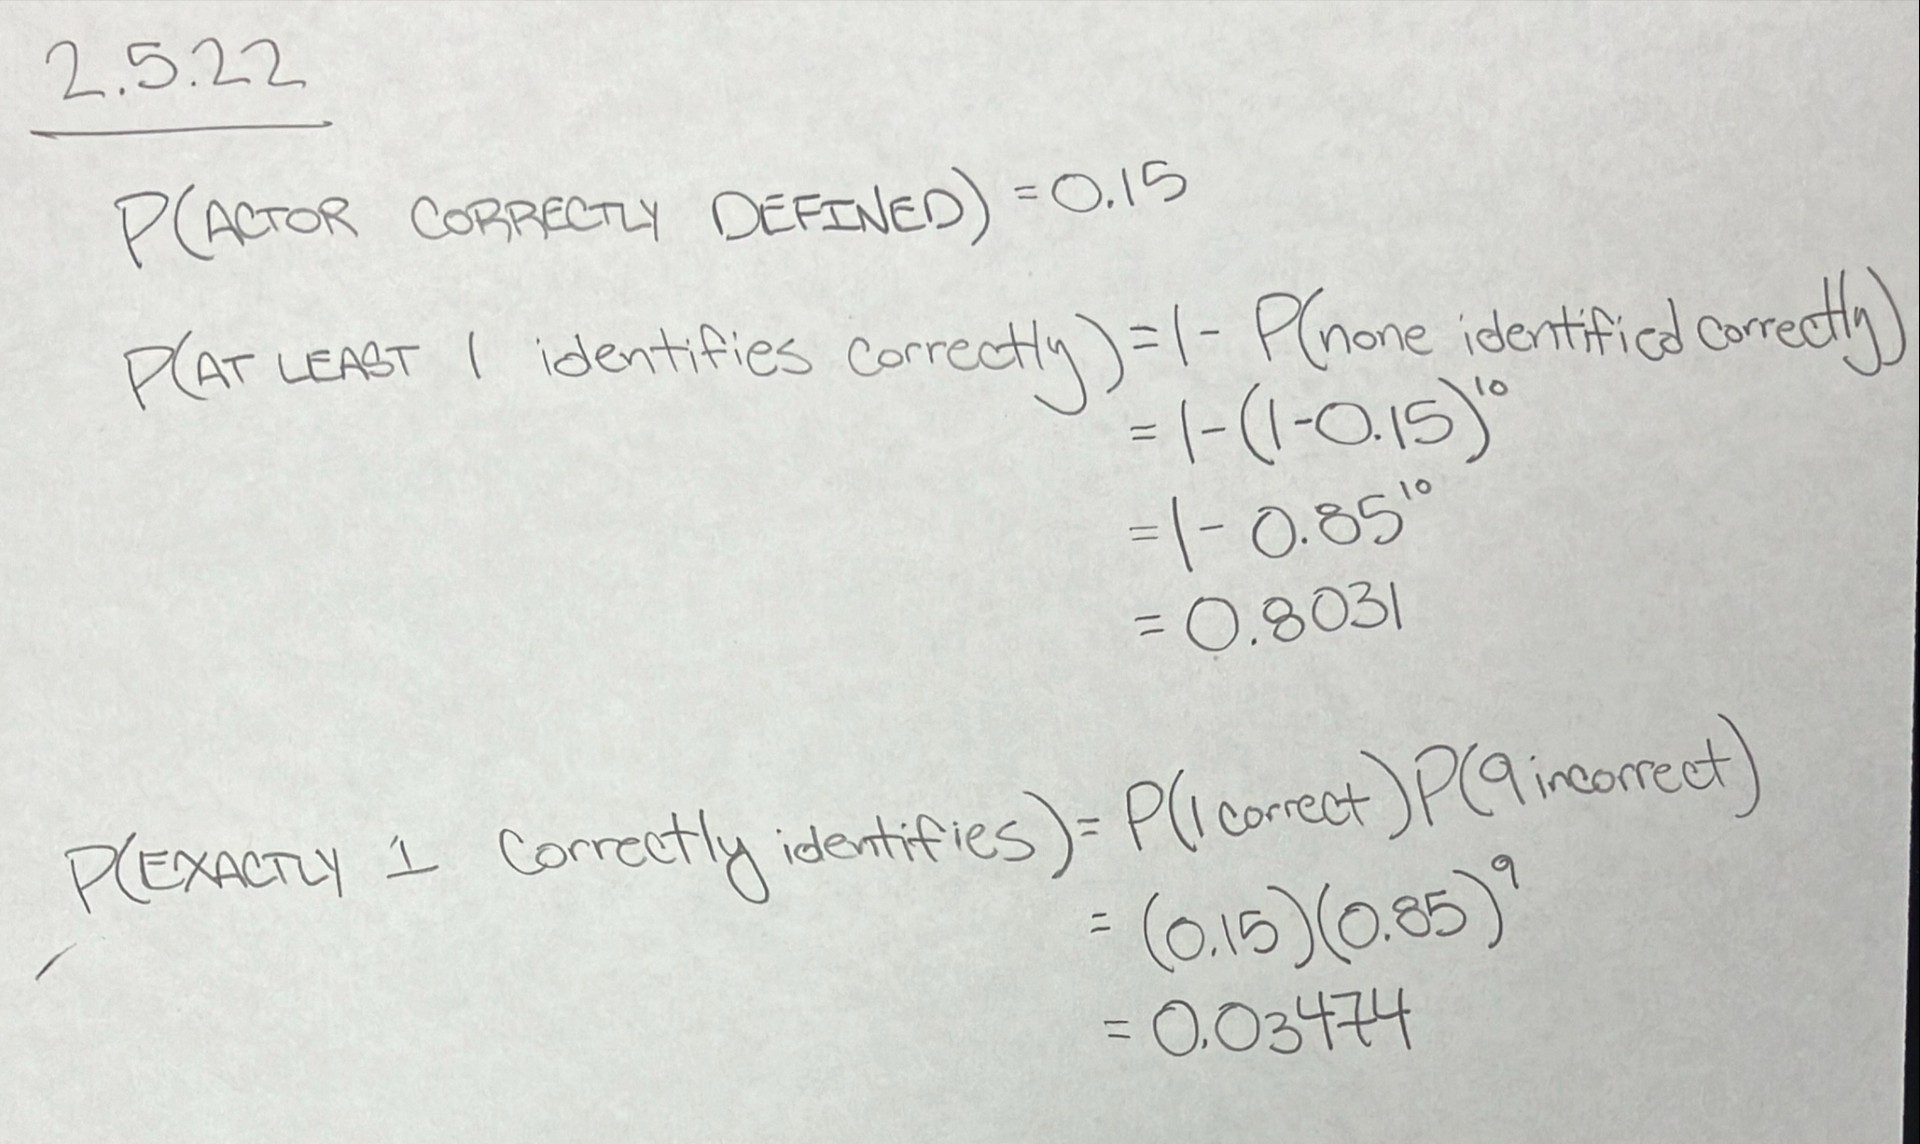 2.5.22
P(ACTOR CORRECTLY DEFINED) = 0.15
P(AT LEAST 1 identifies correctly) = 1 - P(none identified correctly)
= 1-(1-0.15)¹⁰
= 1- 0.85¹⁰
= 0.8031
P(EXACTLY 1 Correctly identifies) = P(1 correct)P(9 incorrect)
= (0.15)(0.85)⁹
= 0.03474